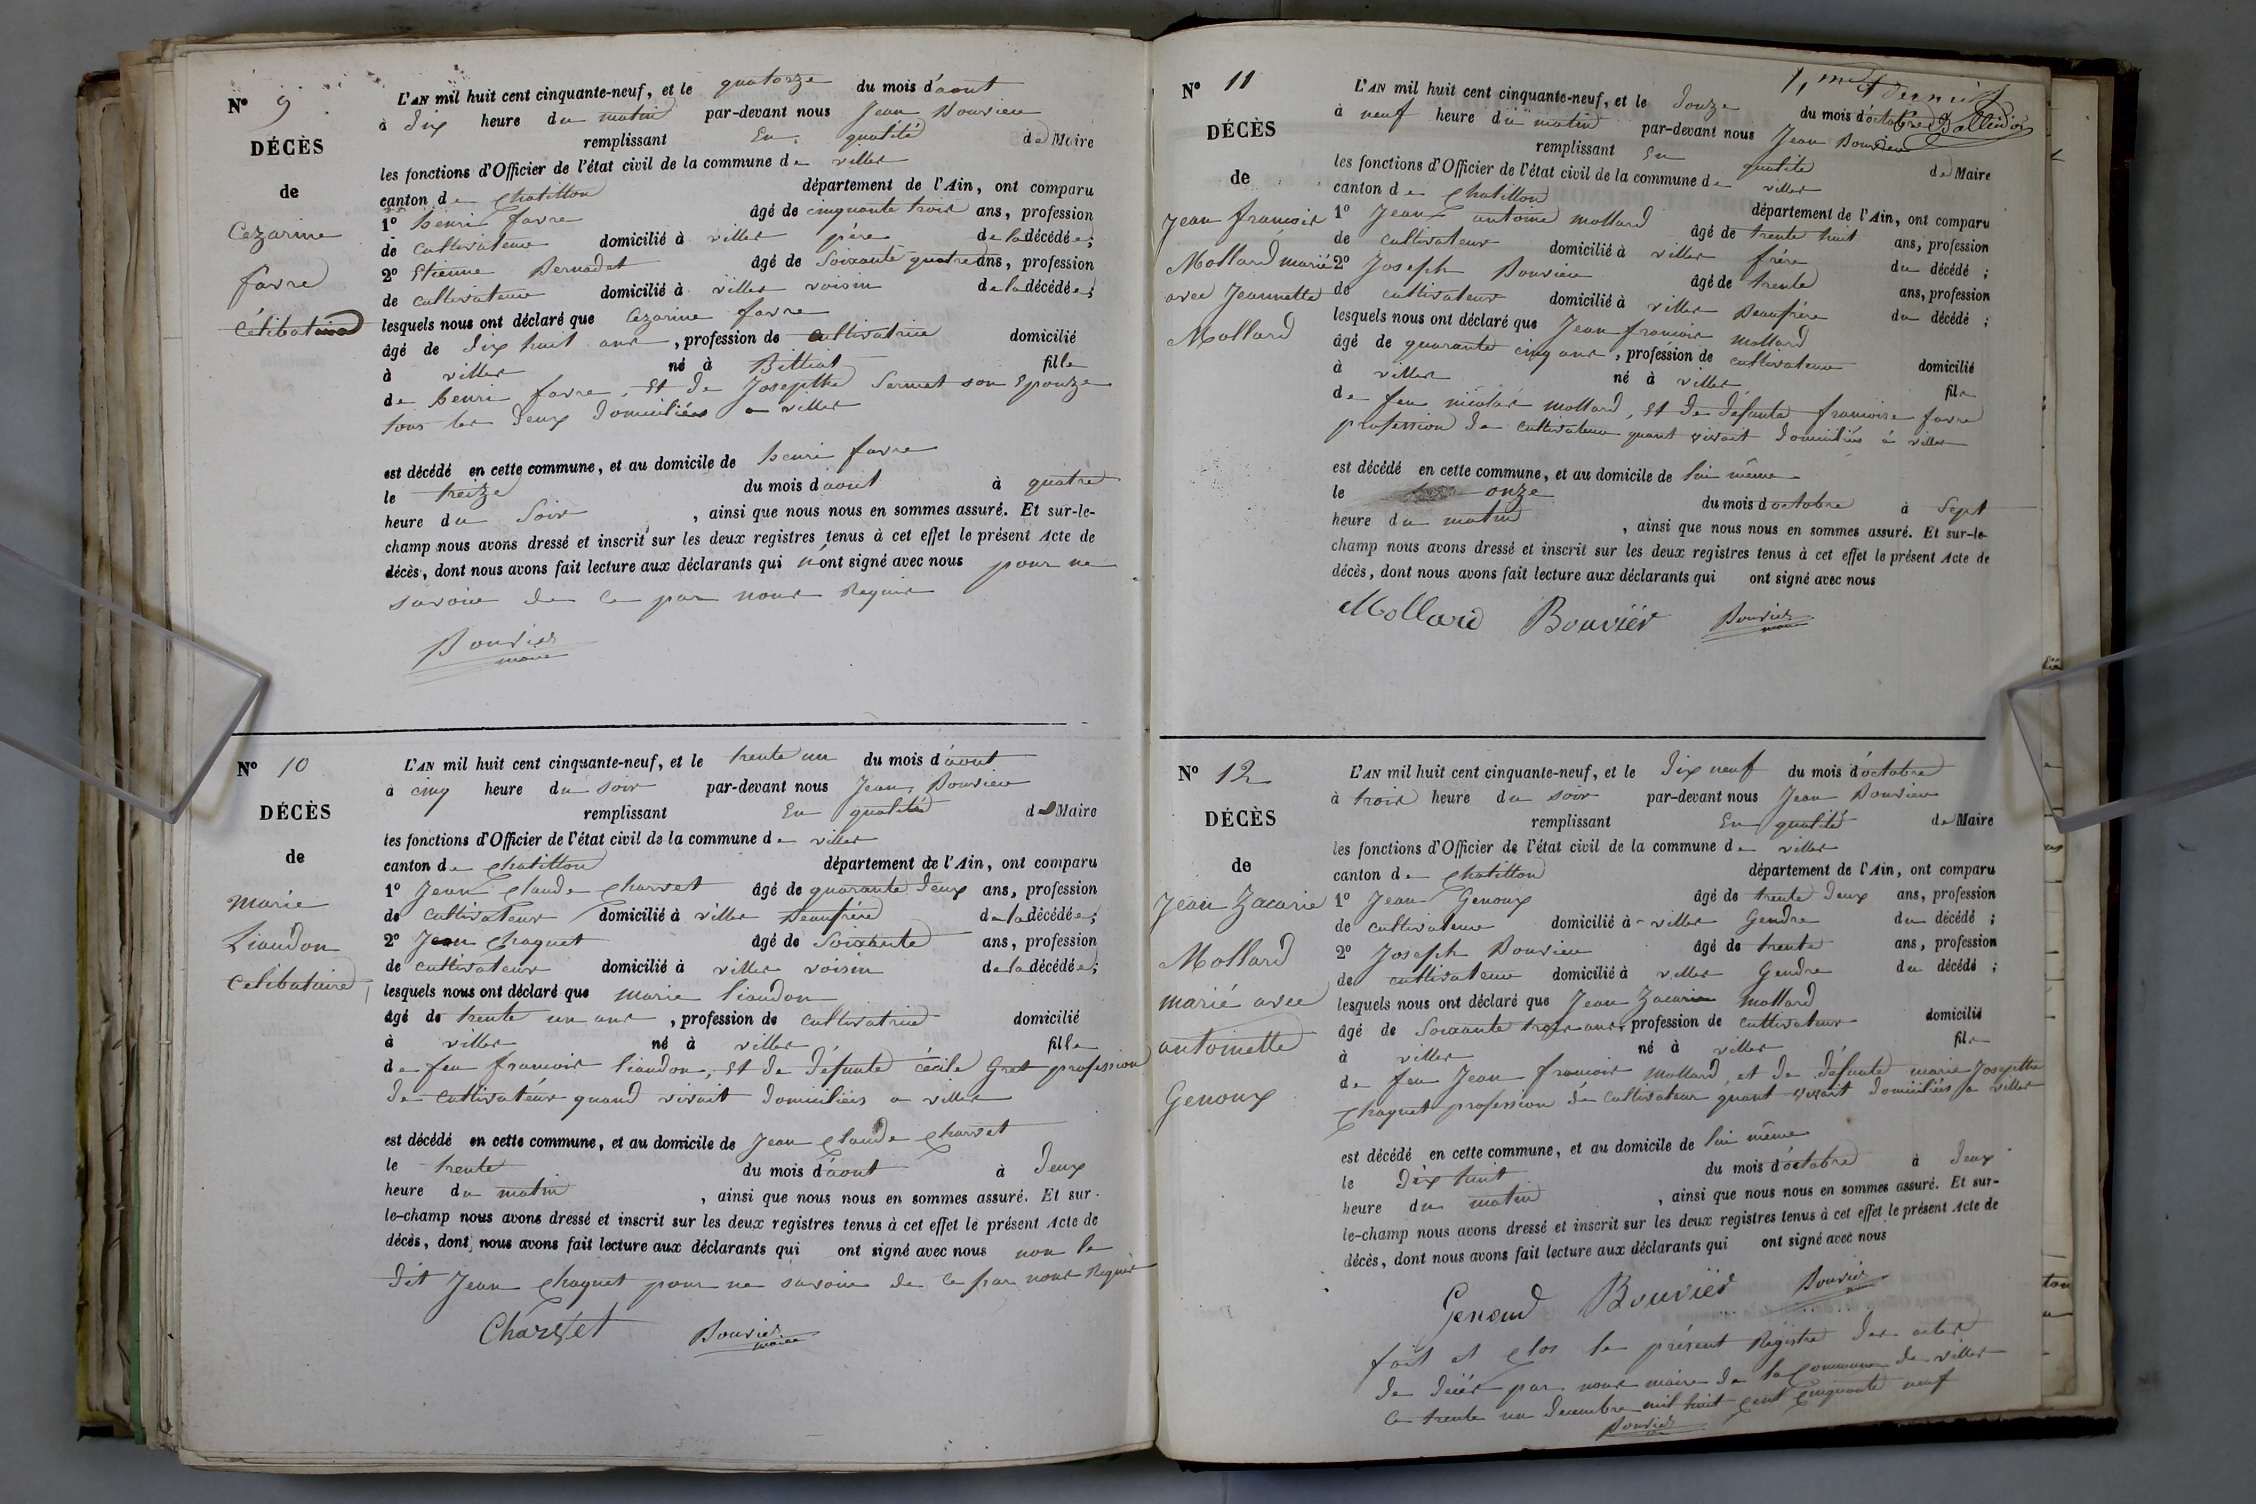 N° 9
DÉCÈS
de
Cezarine
favre
célibataire
L'AN mil huit cent cinquante-neuf, et le quatorze du mois d'aout
à dix heure du matin par-devant nous Jean Bouvier
remplissant En qualité de Maire
les fonctions d'Officier de l'état civil de la commune de villes
canton de Chatillon département de l'Ain, ont comparu
1° henri favre âgé de cinquante trois ans, profession
de cultivateur domicilié à villes père de la décédée;
2° Etienne Bernadet âgé de Soixante quatre ans, profession
de cultivateur domicilié à villes voisin de la décédée;
lesquels nous ont déclaré que Cezarine favre
âgé de dix huit ans, profession de cultivatrice domicilié
à villes né à Billiat fille
de henri favre, Et de Josepthe Sermet son Epouze
tous les deux domiciliés a villes
est décédé en cette commune, et au domicile de henri favre
le treize du mois d'aout à quatre
heure du Soir, ainsi que nous nous en sommes assuré. Et sur-le-
champ nous avons dressé et inscrit sur les deux registres tenus à cet effet le présent Acte de
décès, dont nous avons fait lecture aux déclarants qui n'ont signé avec nous pour ne
savoir de ce par nous Requis
Bouvier
maire
N° 10
DÉCÈS
de
marie
Liaudon
célibataire
L'AN mil huit cent cinquante-neuf, et le trente un du mois d'aout
à cinq heure du soir par-devant nous Jean Bouvier
remplissant En qualité de Maire
les fonctions d'Officier de l'état civil de la commune de villes
canton de Chatillon département de l'Ain, ont comparu
1° Jean Claude Charvet âgé de quarante deux ans, profession
de cultivateur domicilié à villes Beaufrère de la décédée;
2° Jean Chaquet âgé de Soixante ans, profession
de cultivateur domicilié à villes voisin de la décédée;
lesquels nous ont déclaré que marie liaudon
âgé de trente un ans, profession de cultivatrice domicilié
à villes né à villes fille
de feu francois liaudon, Et de défunte cécile Gret profession
de cultivateur quand vivait domiciliés a villes
est décédé en cette commune, et au domicile de Jean Claude Charvet
le trente du mois d'aout à deux
heure du matin, ainsi que nous nous en sommes assuré. Et sur-
le-champ nous avons dressé et inscrit sur les deux registres tenus à cet effet le présent Acte de
décès, dont nous avons fait lecture aux déclarants qui ont signé avec nous non le
dit Jean Chaquet pour ne savoir de ce par nous Requis
Charvet Bouvier
maire
N° 11
DÉCÈS
de
Jean francois
Mollard marié
avec Jeannette
Mollard
L'AN mil huit cent cinquante-neuf, et le douze du mois d'octobre
à neuf heure du matin par-devant nous Jean Bouvier
remplissant En qualité de Maire
les fonctions d'Officier de l'état civil de la commune de villes
canton de Chatillon département de l'Ain, ont comparu
1° Jean antoine mollard âgé de trente huit ans, profession
de cultivateur domicilié à villes frère du décédé;
2° Joseph Bouvier âgé de trente ans, profession
de cultivateur domicilié à villes Beaufrère du décédé;
lesquels nous ont déclaré que Jean francois mollard
âgé de quarante cinq ans, profession de cultivateur domicilié
à villes né à villes fils
de feu nicolas mollard, Et de défunte francoise favre
profession de cultivateur quant vivait domiciliés à villes
est décédé en cette commune, et au domicile de lui même
le onze du mois d'octobre à Sept
heure du matin, ainsi que nous nous en sommes assuré. Et sur-le-
champ nous avons dressé et inscrit sur les deux registres tenus à cet effet le présent Acte de
décès, dont nous avons fait lecture aux déclarants qui ont signé avec nous
Mollard Bouvier Bouvier
maire
N° 12
DÉCÈS
de
Jean Zacarie
Mollard
marié avec
antoinette
Genoux
L'AN mil huit cent cinquante-neuf, et le dix neuf du mois d'octobre
à trois heure du soir par-devant nous Jean Bouvier
remplissant En qualité de Maire
les fonctions d'Officier de l'état civil de la commune de villes
canton de Chatillon département de l'Ain, ont comparu
1° Jean Genoux âgé de trente deux ans, profession
de cultivateur domicilié à villes Gendre du décédé;
2° Joseph Bouvier âgé de trente ans, profession
de cultivateur domicilié à villes Gendre du décédé;
lesquels nous ont déclaré que Jean Zacarie mollard
âgé de Soixante trois ans, profession de cultivateur domicilié
à villes né à villes fils
de feu Jean francois mollard, et de défunte marie Josepthe
Chaquet profession de cultivateur quant vivait domiciliés a villes
est décédé en cette commune, et au domicile de lui même
le dix huit du mois d'octobre à deux
heure du matin, ainsi que nous nous en sommes assuré. Et sur-
le-champ nous avons dressé et inscrit sur les deux registres tenus à cet effet le présent Acte de
décès, dont nous avons fait lecture aux déclarants qui ont signé avec nous
Genoud Bouvier Bouvier
fait et clos le présent Registre des actes
de décès par nous maire de la Commune de villes
ce trente un decembre mil huit cent cinquante neuf
Bouvier